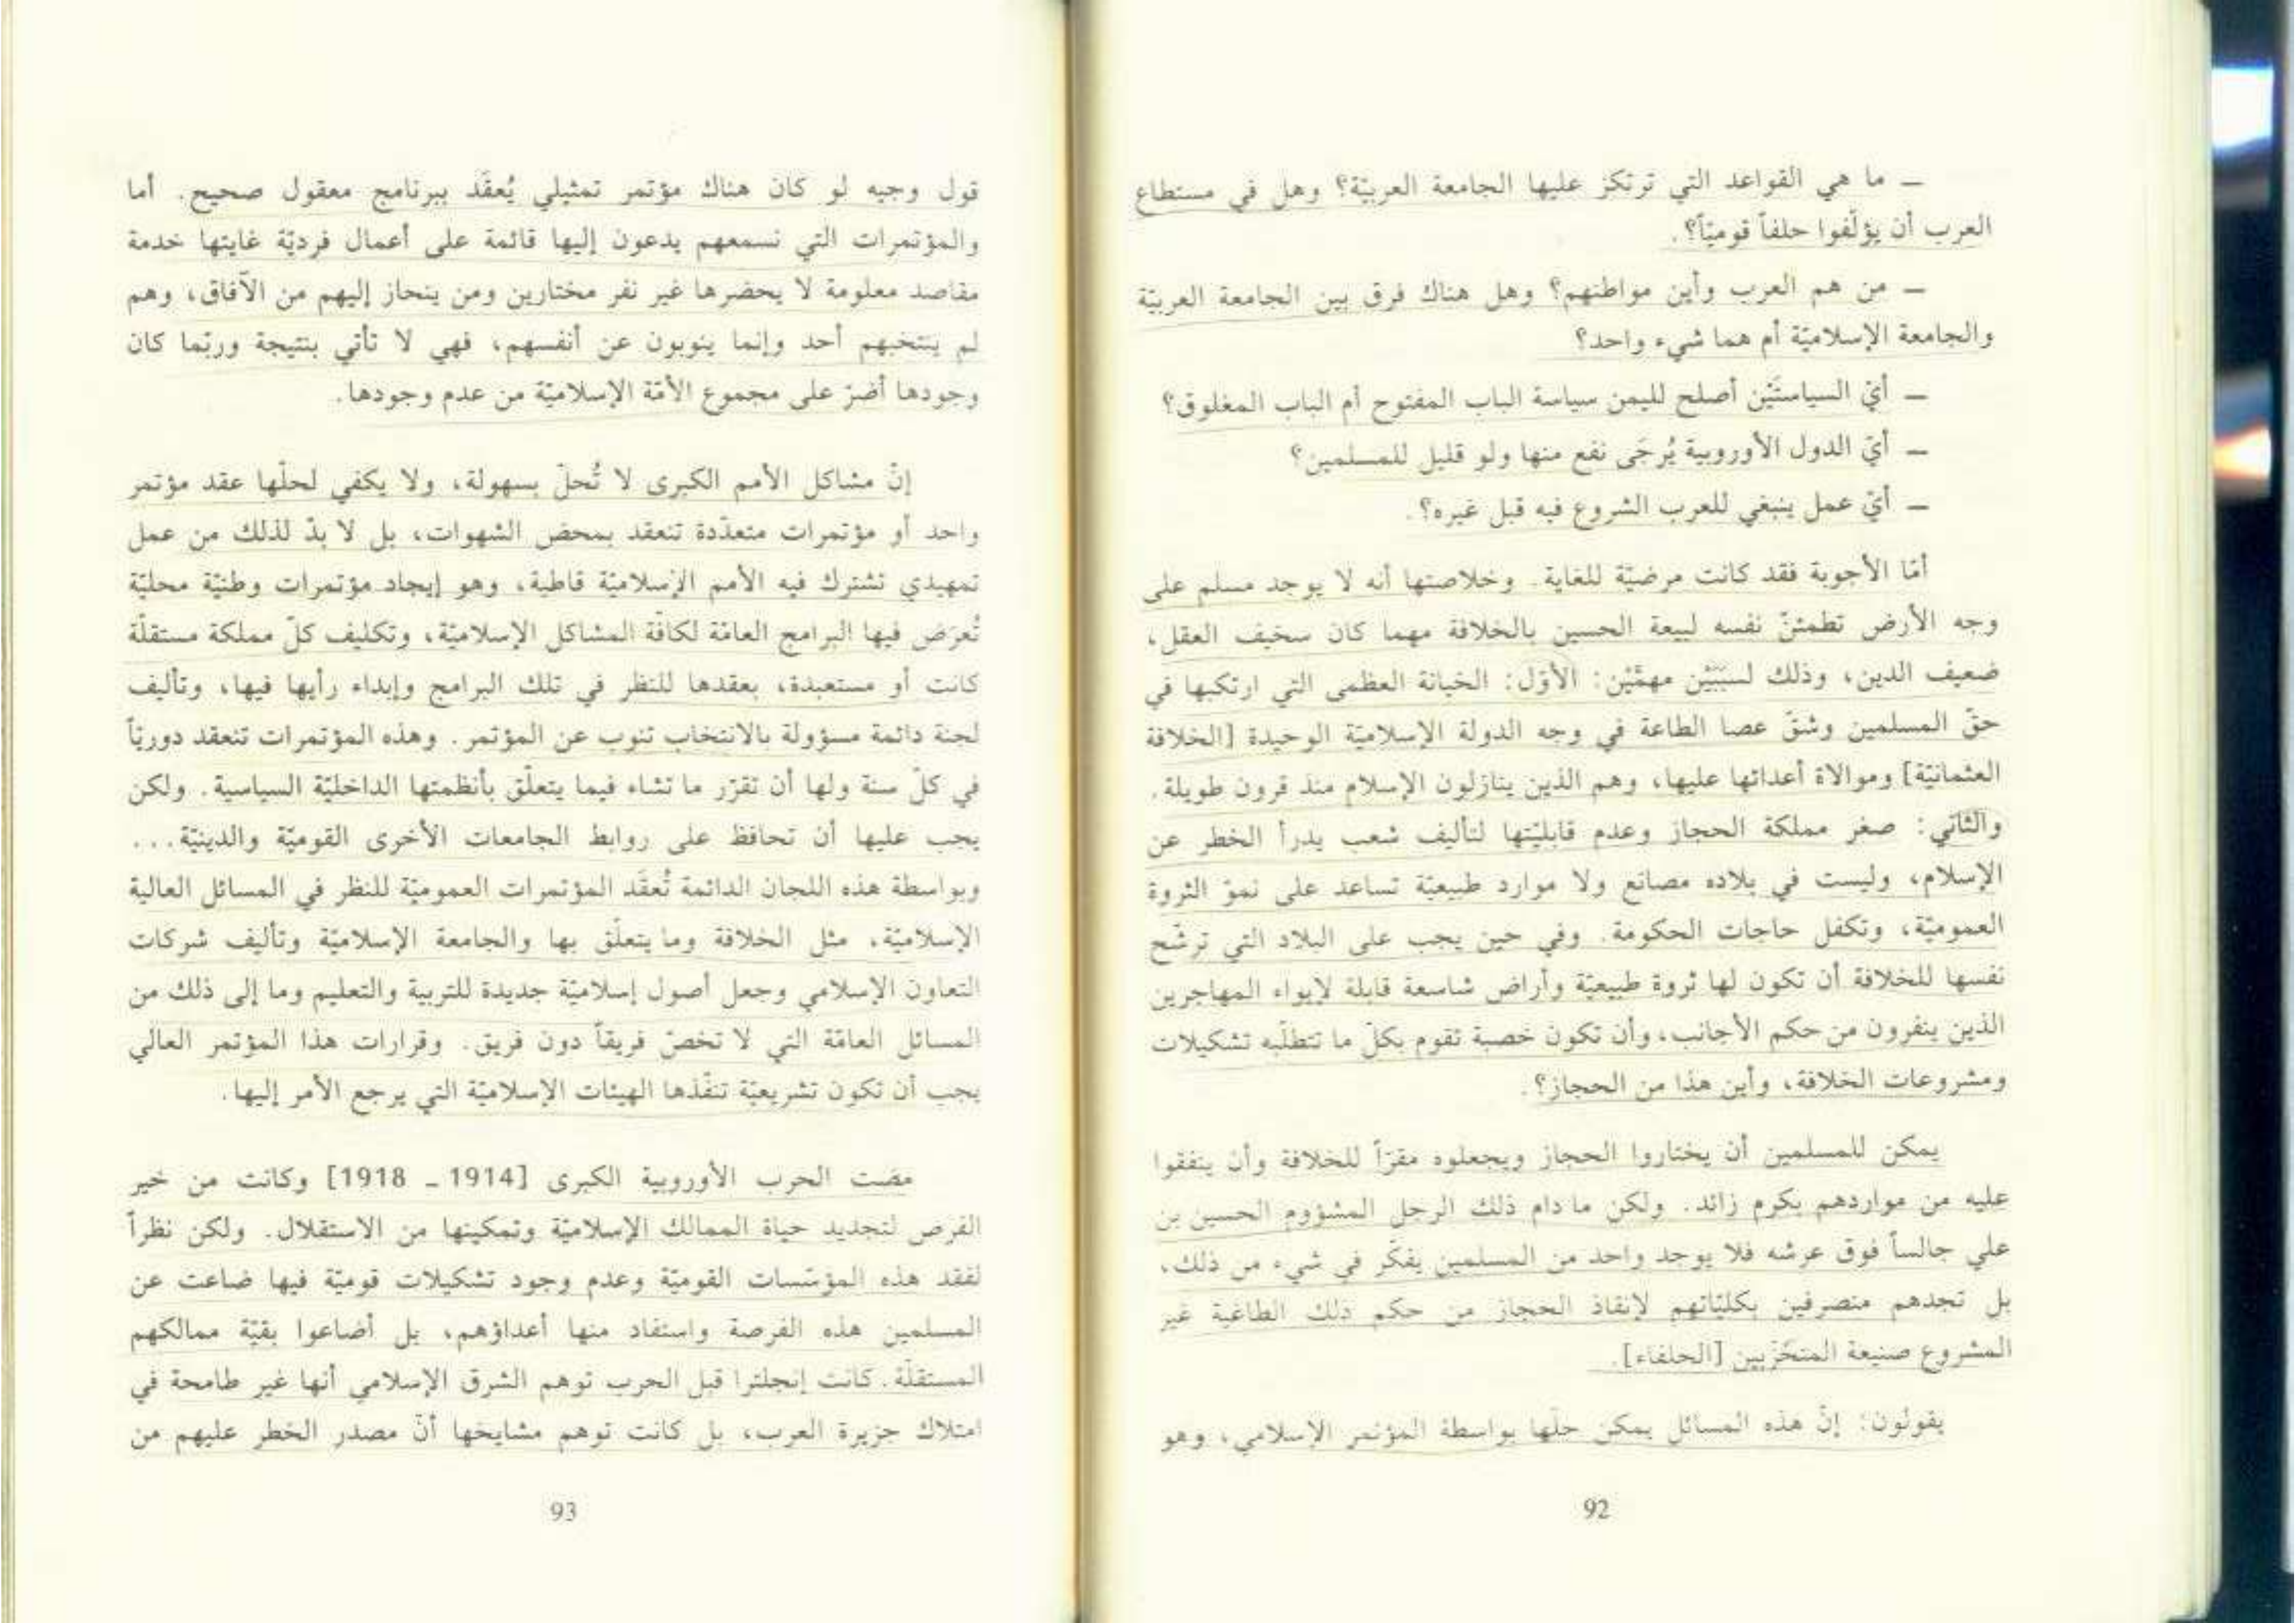 ـ ما هي القواعد التي ترتكز عليها الجامعة العربيّة؟ وهل في مستطاع
العرب أن يؤلّفوا حلفاً قوميّاً؟.
ـ من هم العرب وأين مواطنهم؟ وهل هناك فرق بين الجامعة العربيّة
والجامعة الإسلاميّة أم هما شيء واحد؟
ـ أيّ السياستَيْن أصلح لليمن سياسة الباب المفتوح أم الباب المغلوق؟
ـ أيّ الدول الأوروبية يُرجَى نفع منها ولو قليل للمسلمين؟
ـ أيّ عمل ينبغي للعرب الشروع فيه قبل غيره؟.
أمّا الأجوبة فقد كانت مرضيّة للغاية. وخلاصتها أنه لا يوجد مسلم على
وجه الأرض تطمئنّ نفسه لبيعة الحسين بالخلافة مهما كان سخيف العقل،
ضعيف الدين، وذلك لسبَبَيْن مهمَّيْن: الأوّل: الخيانة العظمى التي ارتكبها في
حقّ المسلمين وشقّ عصا الطاعة في وجه الدولة الإسلاميّة الوحيدة [الخلافة
العثمانيّة] وموالاة أعدائها عليها، وهم الذين ينازلون الإسلام منذ قرون طويلة.
والثاني: صغر مملكة الحجاز وعدم قابليّتها لتأليف شعب يدرأ الخطر عن
الإسلام، وليست في بلاده مصانع ولا موارد طبيعيّة تساعد على نموّ الثروة
العموميّة، وتكفل حاجات الحكومة. وفي حين يجب على البلاد التي ترشّح
نفسها للخلافة أن تكون لها ثروة طبيعيّة وأراض شاسعة قابلة لإيواء المهاجرين
الذين ينفرون من حكم الأجانب، وأن تكون خصبة تقوم بكلّ ما تتطلّبه تشكيلات
ومشروعات الخلافة، وأين هذا من الحجاز؟.
يمكن للمسلمين أن يختاروا الحجاز ويجعلوه مقرّاً للخلافة وأن ينفقوا
عليه من مواردهم بكرم زائد. ولكن ما دام ذلك الرجل المشؤوم الحسين بن
علي جالساً فوق عرشه فلا يوجد واحد من المسلمين يفكّر في شيء من ذلك،
بل تجدهم منصرفين بكليّاتهم لإنقاذ الحجاز من حكم ذلك الطاغية غير
المشروع صنيعة المتحزّبين [الحلفاء].
يقولون: إنّ هذه المسائل يمكن حلّها بواسطة المؤتمر الإسلامي، وهو
92
قول وجيه لو كان هناك مؤتمر تمثيلي يُعقَد ببرنامج معقول صحيح. أما
والمؤتمرات التي نسمعهم يدعون إليها قائمة على أعمال فرديّة غايتها خدمة
مقاصد معلومة لا يحضرها غير نفر مختارين ومن ينحاز إليهم من الآفاق، وهم
لم ينتخبهم أحد وإنما ينوبون عن أنفسهم، فهي لا تأتي بنتيجة وربّما كان
وجودها أضرّ على مجموع الأمّة الإسلاميّة من عدم وجودها.
إنّ مشاكل الأمم الكبرى لا تُحلّ بسهولة، ولا يكفي لحلّها عقد مؤتمر
واحد أو مؤتمرات متعدّدة تنعقد بمحض الشهوات، بل لا بدّ لذلك من عمل
تمهيدي تشترك فيه الأمم الإسلاميّة قاطبة، وهو إيجاد مؤتمرات وطنيّة محليّة
تُعرَض فيها البرامج العامّة لكافّة المشاكل الإسلاميّة، وتكليف كلّ مملكة مستقلّة
كانت أو مستعبدة، بعقدها للنظر في تلك البرامج وإبداء رأيها فيها، وتأليف
لجنة دائمة مسؤولة بالانتخاب تنوب عن المؤتمر. وهذه المؤتمرات تنعقد دوريّاً
في كلّ سنة ولها أن تقرّر ما تشاء فيما يتعلّق بأنظمتها الداخليّة السياسية. ولكن
يجب عليها أن تحافظ على روابط الجامعات الأخرى القوميّة والدينيّة...
وبواسطة هذه اللجان الدائمة تُعقَد المؤتمرات العموميّة للنظر في المسائل العالية
الإسلاميّة، مثل الخلافة وما يتعلّق بها والجامعة الإسلاميّة وتأليف شركات
التعاون الإسلامي وجعل أصول إسلاميّة جديدة للتربية والتعليم وما إلى ذلك من
المسائل العامّة التي لا تخصّ فريقاً دون فريق. وقرارات هذا المؤتمر العالي
يجب أن تكون تشريعيّة تنفّذها الهيئات الإسلاميّة التي يرجع الأمر إليها.
مضت الحرب الأوروبية الكبرى [1914 ـ 1918] وكانت من خير
الفرص لتجديد حياة الممالك الإسلاميّة وتمكينها من الاستقلال. ولكن نظراً
لفقد هذه المؤسّسات القوميّة وعدم وجود تشكيلات قوميّة فيها ضاعت عن
المسلمين هذه الفرصة واستفاد منها أعداؤهم، بل أضاعوا بقيّة ممالكهم
المستقلّة. كانت إنجلترا قبل الحرب توهم الشرق الإسلامي أنها غير طامحة في
امتلاك جزيرة العرب، بل كانت توهم مشايخها أنّ مصدر الخطر عليهم من
93